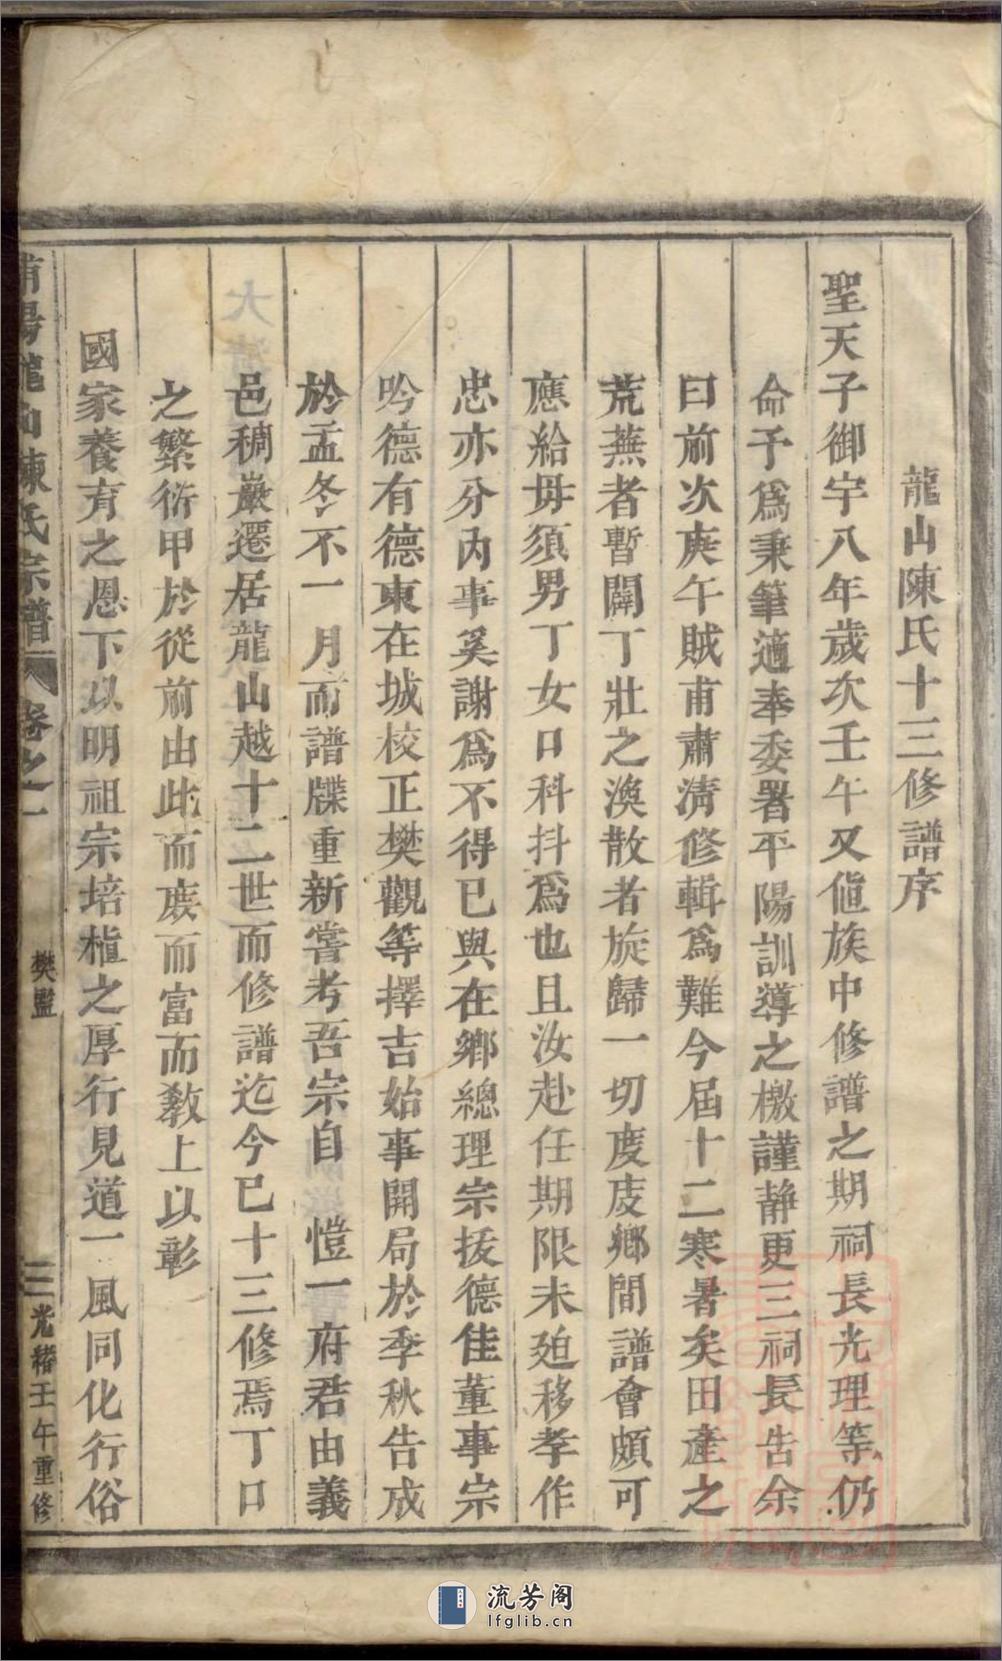 龍山陳氏十三修譜序
聖天子御宇八年歲次壬午又値族中修譜之期祠長光理等仍
命予爲秉筆適奉委署平陽訓導之檄謹靜更三祠長告余
曰前次庚午賊甫肅淸修輯爲難今屆十二寒暑矣田產之
荒蕪者暫闢丁壯之渙散者旋歸一切度庋鄉間譜會頗可
應給毋須男丁女口科抖爲也且汝赴任期限未廹移孝作
忠亦分內事奚謝爲不得已與在鄉總理宗援德佳董事宗
吟德有德東在城校正樊觀等擇吉始事開局於季秋告成
於孟冬不一月而譜牒重新嘗考吾宗自愷一府君由義
邑稠巖遷居龍山越十二世而修譜迄今已十三修焉丁口
之繁衍甲於從前由此而庶而富而敎上以彰
國家養育之恩下以明祖宗培植之厚行見道一風同化行俗
龍山陳氏宗譜 卷之一 樊監 三 光緖壬午重修
流芳阁
lfglib.cn